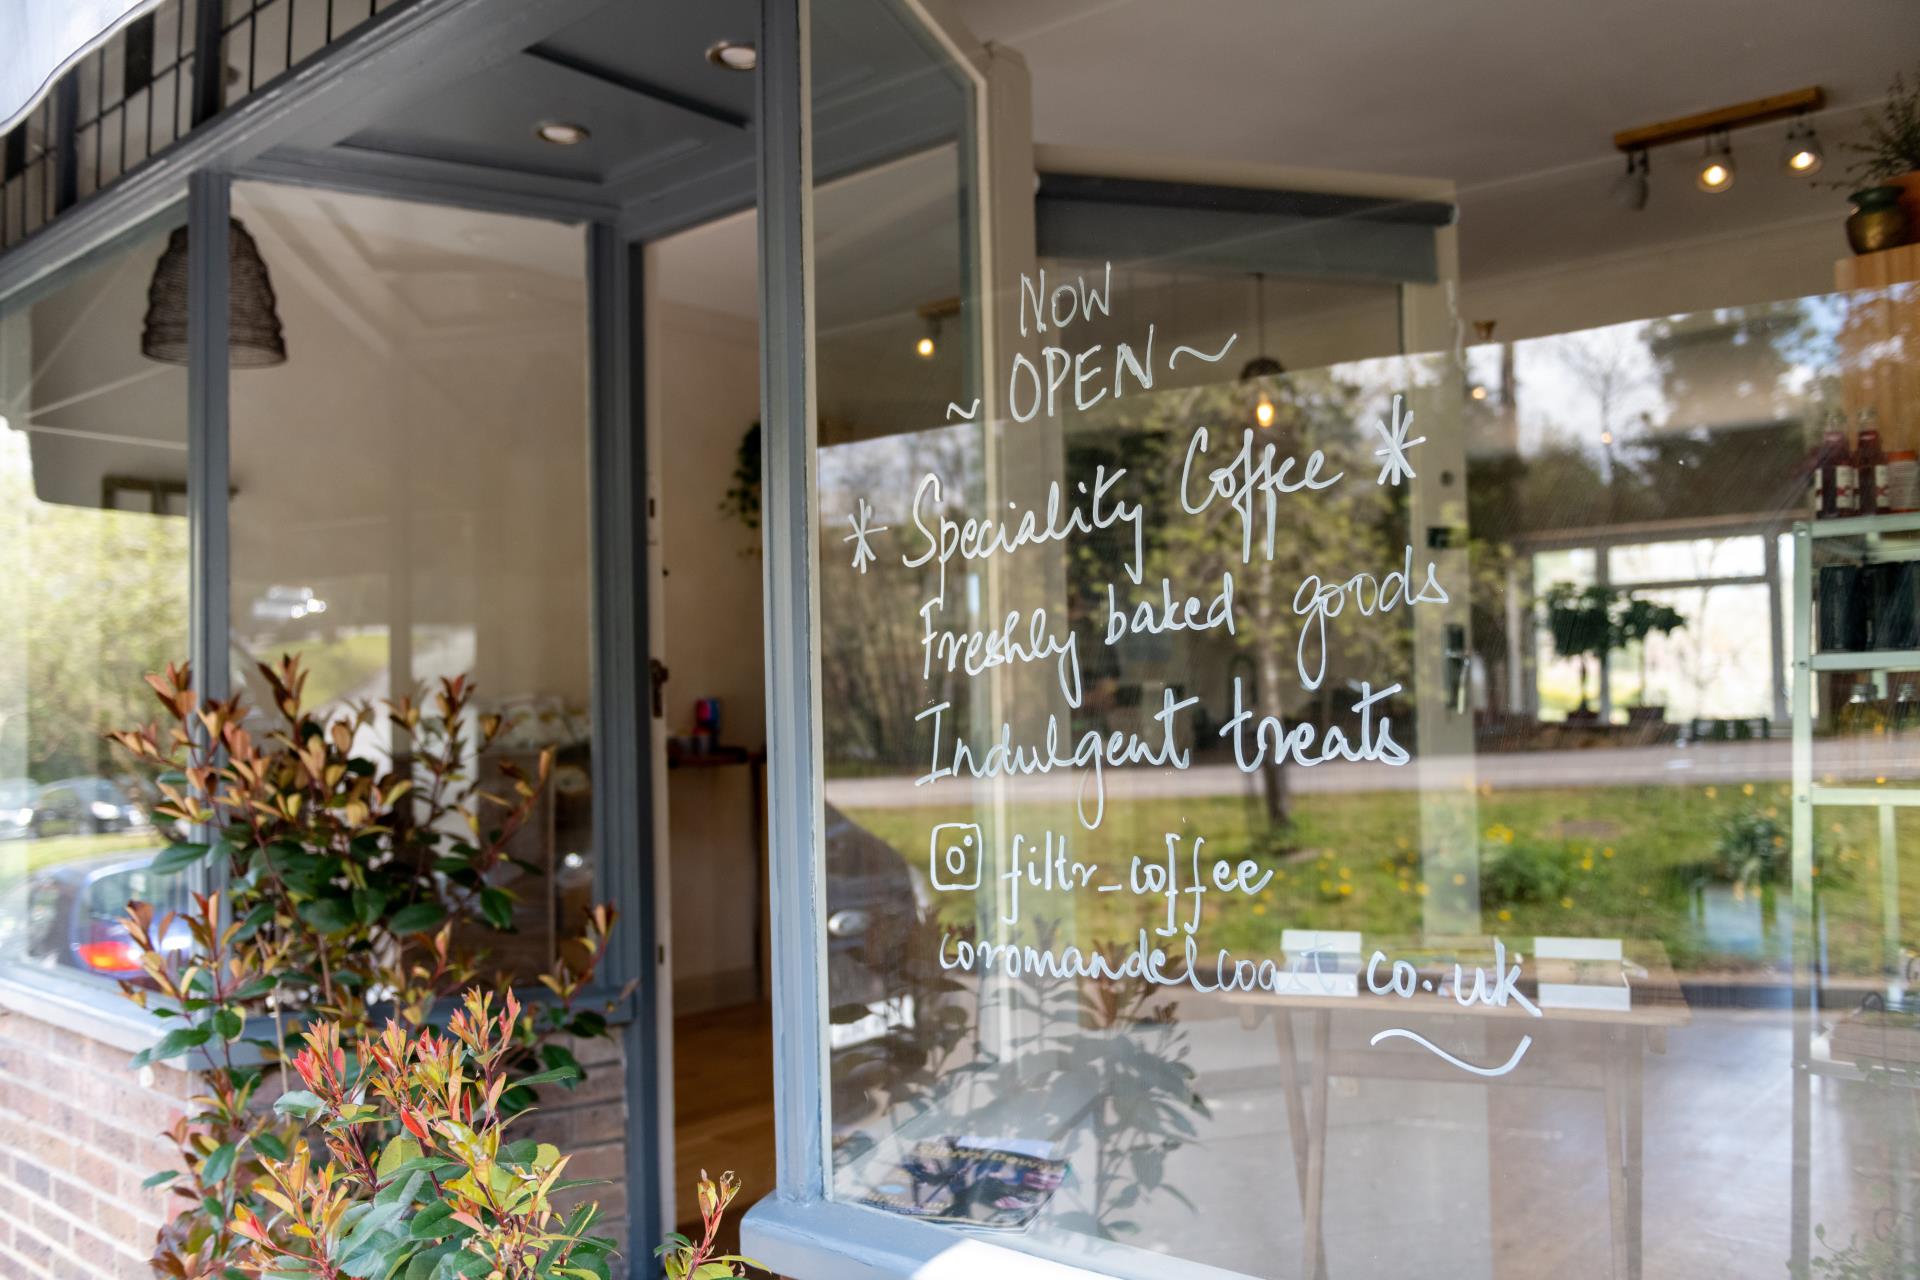 NOW
~ OPEN ~
* Speciality Coffee *
Freshly baked goods
Indulgent treats
filtr_coffee
coromandelcoast.co.uk